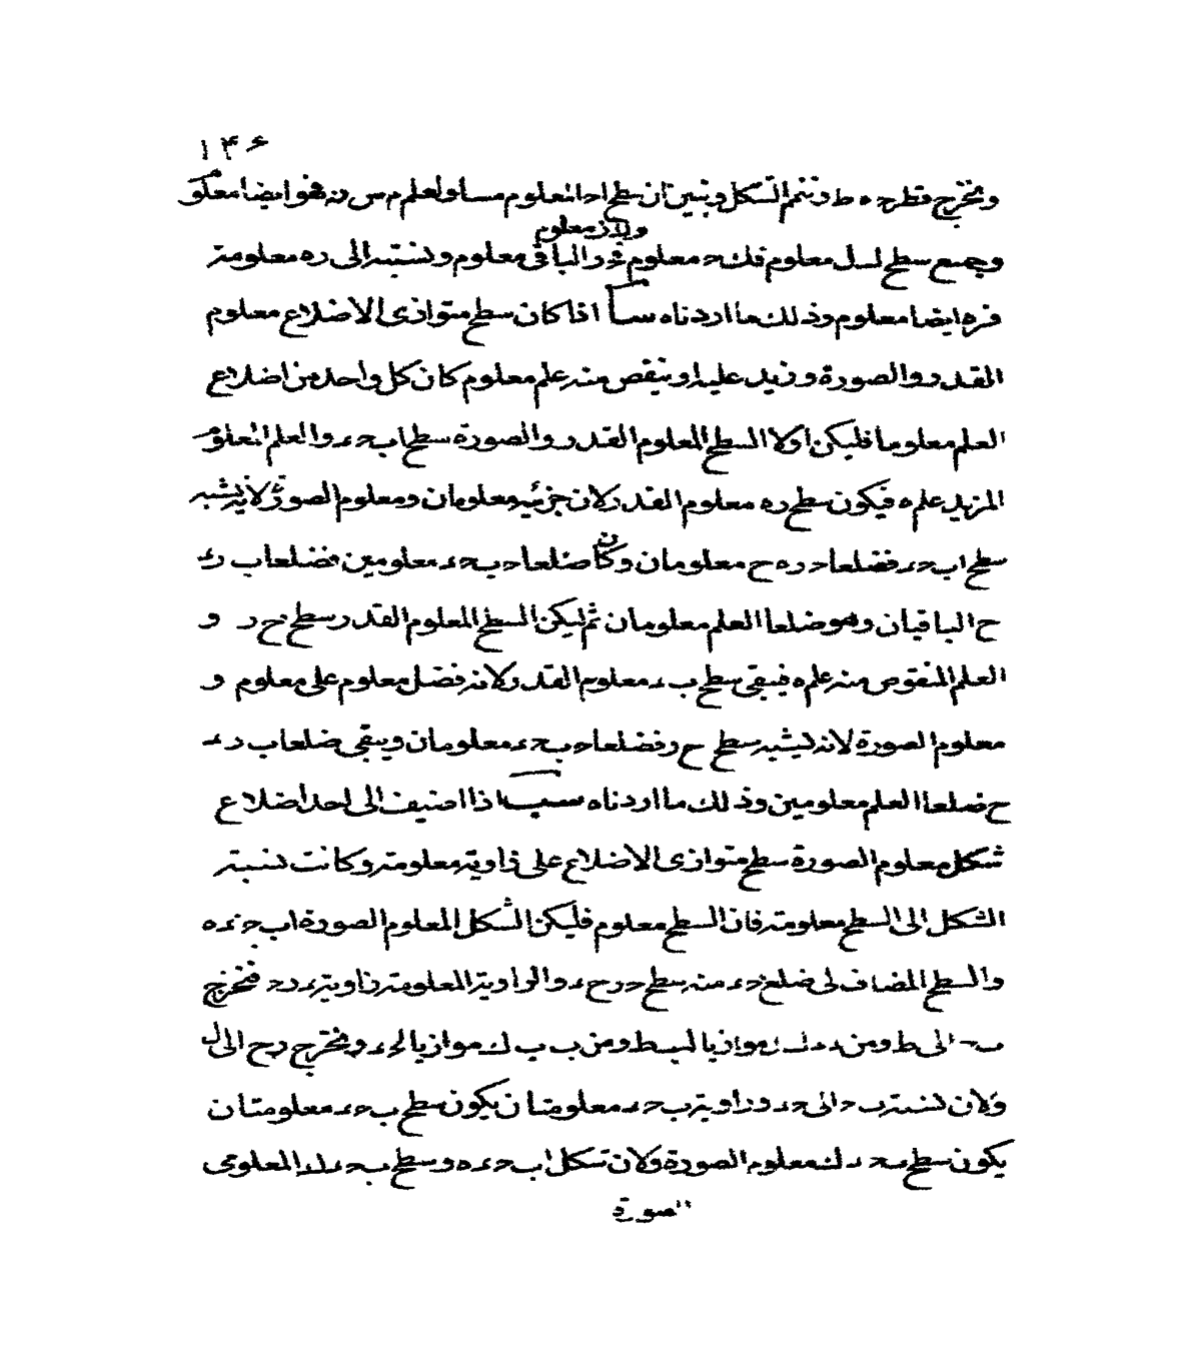 ١۴۶
ونخرج قطر ح ه ط ونتمم الشكل ونبين ان سطح ا ح المعلوم مساو لعلم م س ن فهو ايضا معلوم
و ل ر معلوم
وجميع سطح ل معلوم فلـ ح معلوم ف ر الباقى معلوم ونسبته الى ر ه معلومة
فره ايضا معلوم وذلك ما اردناه سا اذا كان سطح متوازى الاضلاع معلوم
القدر والصورة وزيد عليه او ينقص منه علم معلوم كان كل واحد من اضلاع
العلم معلوما فليكن اولا السطح المعلوم القدر والصورة سطح اب ح ء والعلم المعلوم
المزيد علم ه فيكون سطح ره معلوم القدر لان جزئيه معلومان ومعلوم الصورة لانه يشبه
سطح اب ح ء فضلعا ح ر ه ح معلومان وكان ضلعا ح ب ح ء معلومين فضلعا ب ر ء
ح الباقيان وهو ضلعا العلم معلومان ثم ليكن السطح المعلوم القدر سطح ح ر و
العلم المنقوص منه علم ه فيبقى سطح ب ء معلوم القدر لانه فضل معلوم على معلوم و
معلوم الصورة لانه يشبه سطح ح ر فضلعا ح ب ح ء معلومان ويبقى ضلعا ب ر ء
ح ضلعا العلم معلومين وذلك ما اردناه سب اذا اضيف الى احد اضلاع
شكل معلوم الصورة سطح متوازى الاضلاع على زاوية معلومة وكانت نسبة
الشكل الى السطح معلومة فان السطح معلوم فليكن الشكل المعلوم الصورة اب ح ء ه
والسطح المضاف الى ضلع ح ء منه سطح ح ر ح ء والزاوية المعلومة زاوية ء ر ح فنخرج
ب ح الى ط ومن ء ء ك ل موازيا لب ط ومن ب ب ك موازيا لح ء ونخرج رح الى ل
ولان نسبة ب ح الى ح ء وزاوية ب ح ء معلومتان يكون سطح ب ح ء معلومتان
يكون سطح ب ح ء ك معلوم الصورة ولان شكل اب ح ء ه وسطح ب ح ء ك المعلومى
الصورة